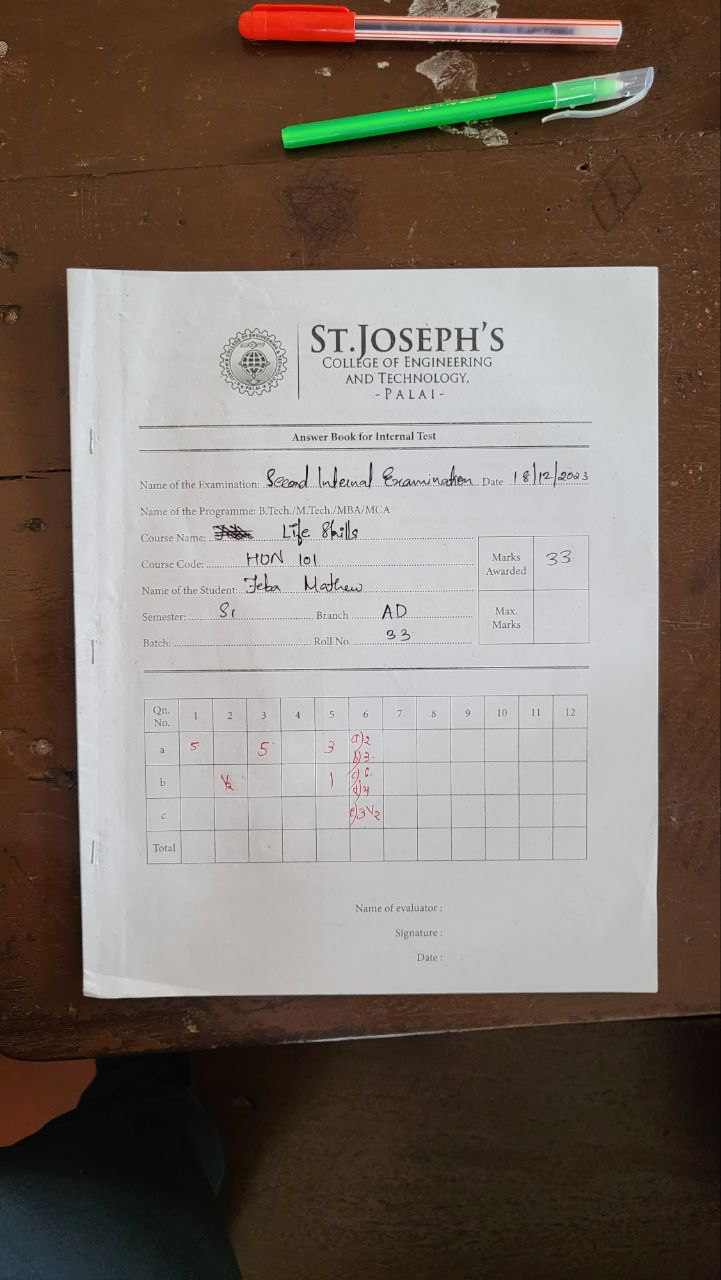 ST.JOSEPH'S
COLLEGE OF ENGINEERING
AND TECHNOLOGY,
- PALAI -
Answer Book for Internal Test
Name of the Examination: Second Internal Examination Date 18/12/2023
Name of the Programme: B.Tech./M.Tech./MBA/MCA
Course Name: Life Skills
Course Code: HUN 101
Marks Awarded 33
Name of the Student: Jeba Mathew
Semester: S1 Branch AD
Max. Marks
Batch: Roll No. 33
Qn. No. 1 2 3 4 5 6 7 8 9 10 11 12
a 5 5 3 a) 2
b) 3
b 1/2 1 c) 6
d) 4
c e) 3 1/2
Total
Name of evaluator :
Signature :
Date :